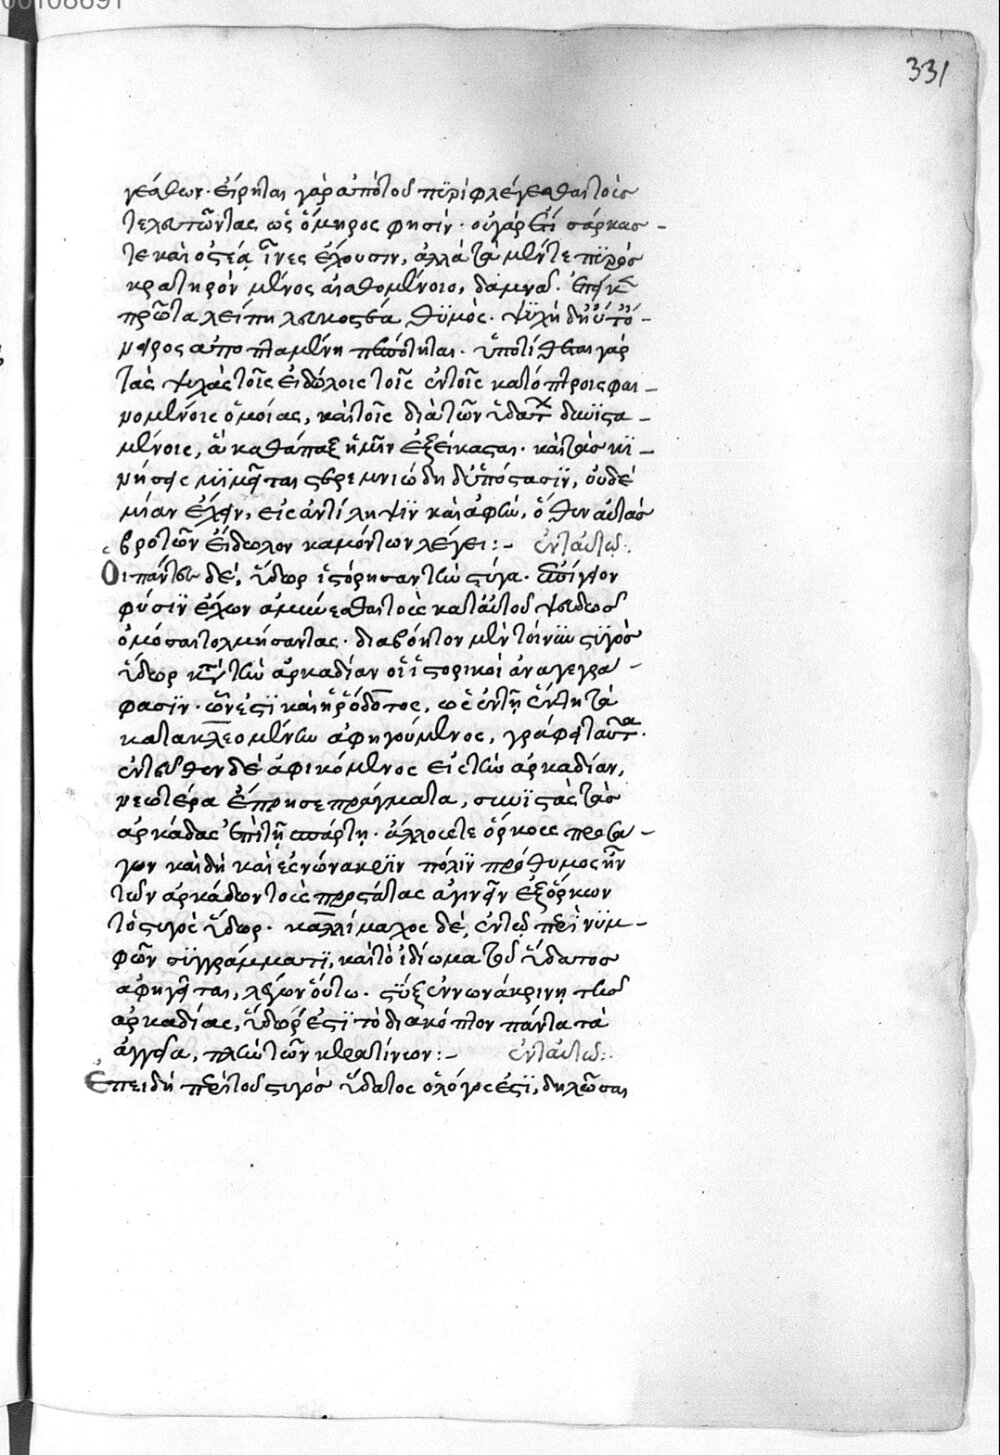 331
γέθων· εἴρηται γὰρ ἀπὸ τοῦ πυρὶ φλέγεσθαι τοὺς
τελευτῶντας ὡς ὅμηρος φησὶν· οὐ γὰρ ἔτι σάρκας
τε καὶ ὀστέα ἶνες ἔχουσιν, ἀλλὰ τὰ μέν τε πυρὸς
κρατηρὸν μένος αἰθομένοιο, δαμνᾶ· ἐπεί κε
πρῶτα λείπῃ λευκὸς ὀστέα θυμὸς· ψυχὴ δ' ἠΰτ' ὄ
νειρος ἀποπταμένη πεπότηται· ὑποτίθεται γὰρ
τὰς ψυχὰς τοῖς εἰδώλοις τοῖς ἐν τοῖς κατόπτροις φαι
νομένοις ὁμοίας, καὶ τοῖς διὰ τῶν ὑδάτων συνιστα
μένοις, ἃ καθάπαξ ἡμῖν ἐξείκασται· καὶ τὰς κι
νήσεις μιμεῖται στερεμνιώδη δ' ὑπόστασιν, οὐδε
μίαν ἔχειν, εἰς ἀντίληψιν καὶ ἀφὴν, ὅθεν αὐτὰς
βροτῶν εἴδωλον καμόντων λέγει:- ἐν ταὐτῷ:
Οἱ πάντες δέ, ὕδωρ ἱστόρησαν τὴν στύγα· ἀποίητον
φύσιν ἔχων ἀμύνεσθαι τοὺς κατ' αὐτοῦ ψευδῶς
ὀμόσαι τολμήσαντας· διαβόητον μὲν τοίνυν στυγὸς
ὕδωρ κατὰ τὴν ἀρκαδίαν οἱ ἱστορικοὶ ἀναγεγρα
φασιν· ὧν ἐστι καὶ ἡρόδοτος, ὡς ἐν τῇ ἕκτῃ τὰ
κατὰ κλεομένην ἀφηγούμενος, γράφει ταῦτα·
ἐντεῦθεν δὲ ἀφικόμενος εἰς τὴν ἀρκαδίαν,
νεωτέρα ἔπρησε πράγματα, συνιστὰς τοὺς
ἀρκάδας ἐπὶ τῇ σπάρτῃ· ἄλλους τε ὅρκους προσά
γων καὶ δὴ καὶ ἐς νώνακριν πόλιν πρόθυμος ἦν
τῶν ἀρκάδων τοὺς προστάτας ἀγινεῖν ἐξόρκων
τὸ στυγὸς ὕδωρ· καλλίμαχος δὲ, ἐν τῷ περὶ νυμ
φῶν συγγράμματι, καὶ τὸ ἰδίωμα τοῦ ὕδατος
ἀφηγεῖται, λέγων οὕτω· στὺξ ἐν νωνάκρινῃ τῆς
ἀρκαδίας, ὕδωρ ἐστὶ τὸ διακόπτον πάντα τὰ
ἀγγεῖα, πλὴν τῶν κερατίνων:- ἐν ταὐτῷ:
Ἐπειδὴ περὶ τοῦ στυγὸς ὕδατος ὁ λόγος ἐστὶ, δηλῶσαι